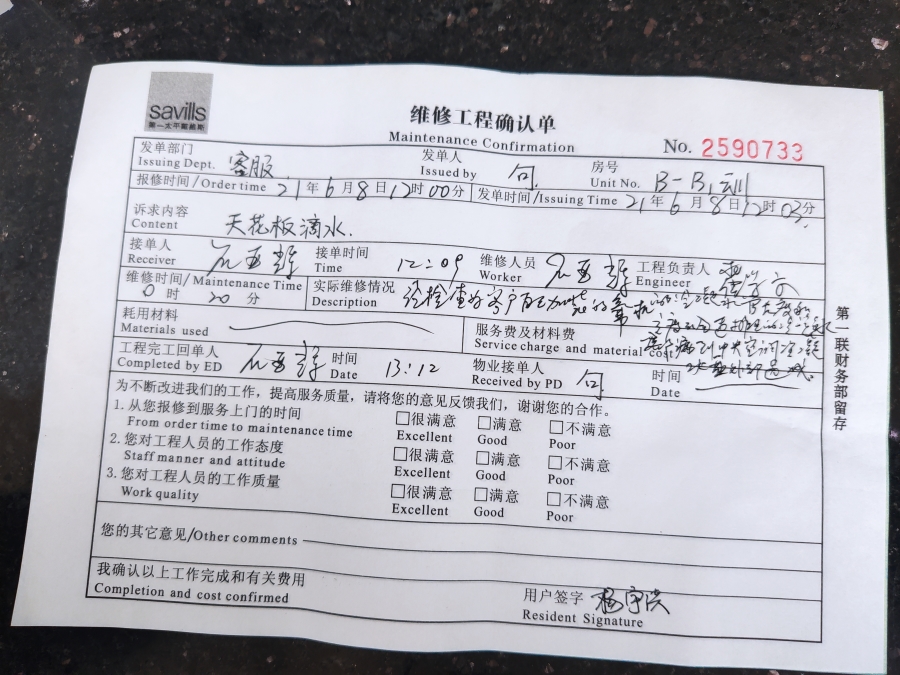 savills
第一太平戴维斯
维修工程确认单
Maintenance Confirmation
No. 2590733
发单部门 客服 发单人 房号
Issuing Dept. Issued by 句 Unit No. B-B1
报修时间/Order time 21年6月8日12时00分 发单时间/Issuing Time 21年6月8日12时03分
诉求内容
Content 天花板滴水.
接单人 接单时间 维修人员 工程负责人
Receiver Time 12:09 Worker Engineer
维修时间/Maintenance Time 实际维修情况 经检查
0时20分 Description
耗用材料 服务费及材料费
Materials used Service charge and material cost
工程完工回单人 时间 物业接单人 时间
Completed by ED Date 13:12 Received by PD 句 Date
为不断改进我们的工作，提高服务质量，请将您的意见反馈我们，谢谢您的合作。
1. 从您报修到服务上门的时间 □很满意 □满意 □不满意
From order time to maintenance time Excellent Good Poor
2. 您对工程人员的工作态度 □很满意 □满意 □不满意
Staff manner and attitude Excellent Good Poor
3. 您对工程人员的工作质量 □很满意 □满意 □不满意
Work quality Excellent Good Poor
您的其它意见/Other comments
我确认以上工作完成和有关费用 用户签字
Completion and cost confirmed Resident Signature
第一联财务部留存